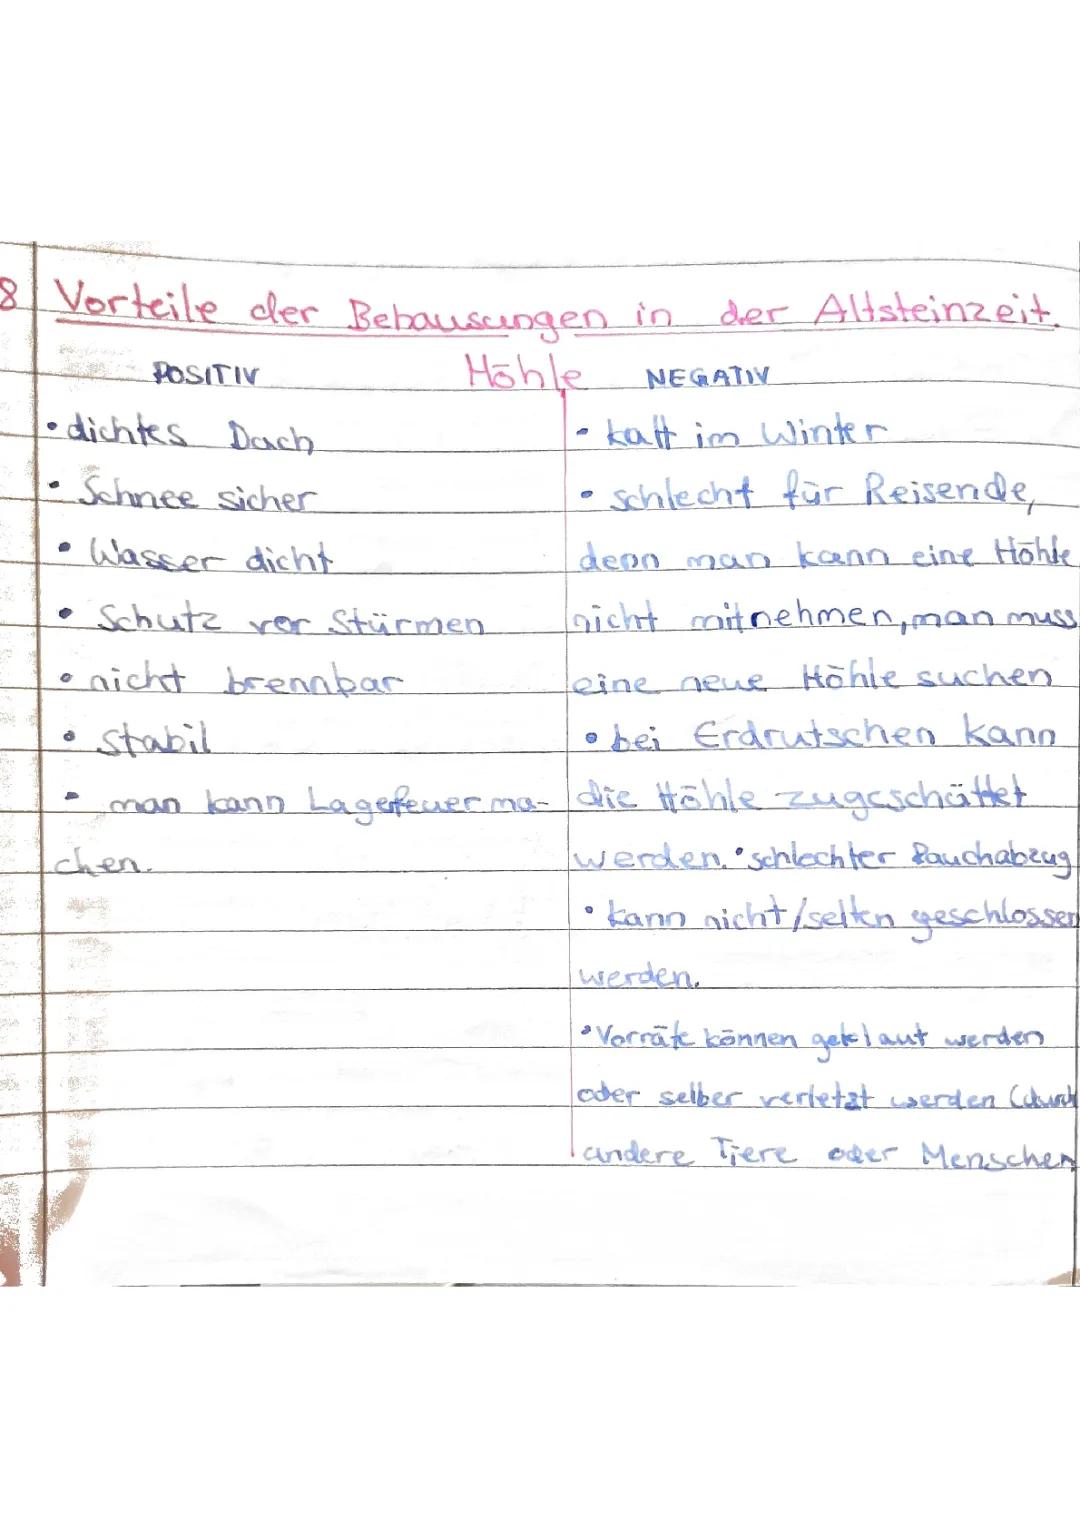 8 Vorteile der Behausungen in der Altsteinzeit.
POSITIV Höhle NEGATIV
• dichtes Dach
• Schnee sicher
• Wasser dicht
• Schutz vor Stürmen
• nicht brennbar
• stabil
• man kann Lagerfeuer ma-
chen.
• kalt im Winter
• schlecht für Reisende,
denn man kann eine Höhle
nicht mitnehmen, man muss
eine neue Höhle suchen
• bei Erdrutschen kann
die Höhle zugeschüttet
werden. • schlechter Rauchabzug
• kann nicht/selten geschlossen
werden.
• Vorräte können geklaut werden
oder selber verletzt werden (durch
andere Tiere oder Menschen